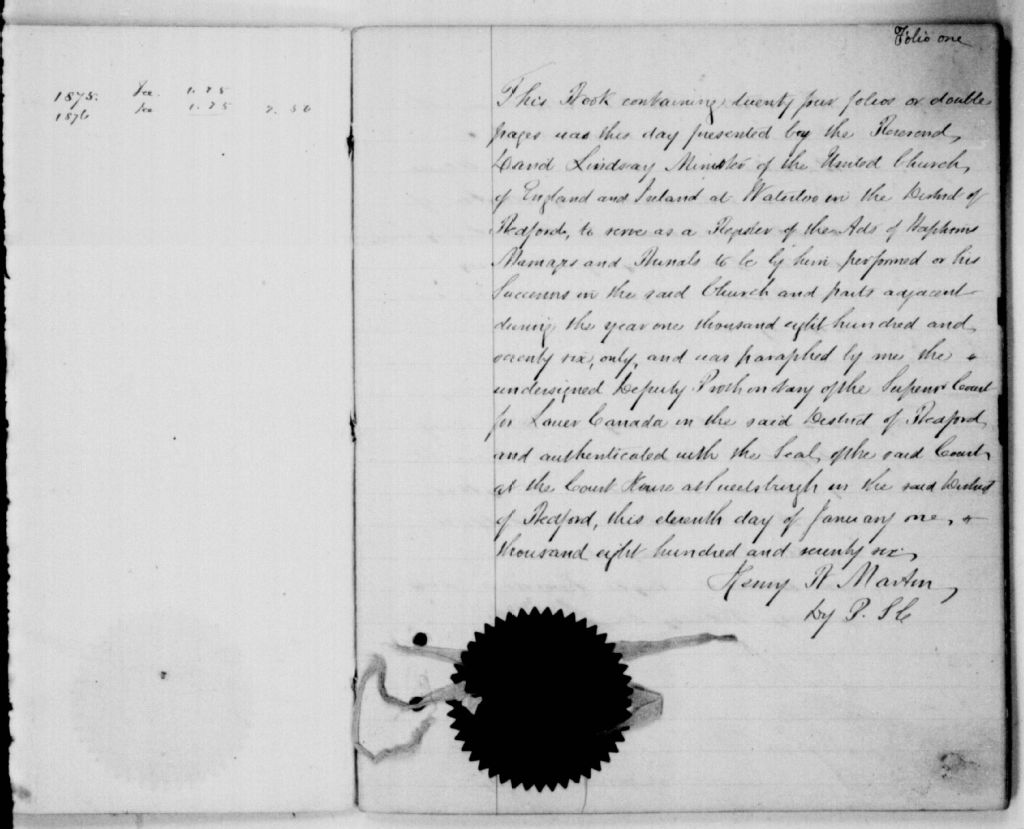 1875. Fee 1.25
1876 Fee 1.25 2.50
Folio one
This Book containing twenty four folios or double
pages was this day presented by the Reverend
David Lindsay Minister of the United Church
of England and Ireland at Waterloo in the District of
Bedford, to serve as a Register of the Acts of Baptisms
Marriages and Burials to be by him performed or his
Successors in the said Church and parts adjacent
during the year one thousand eight hundred and
seventy six, only, and was paraphed by me the
undersigned Deputy Prothonotary of the Superior Court
for Lower Canada in the said District of Bedford,
and authenticated with the Seal of the said Court,
at the Court House at Sweetsburgh in the said District
of Bedford, this eleventh day of January one,
thousand eight hundred and seventy six.
Henry B Martin,
Dy P. S C